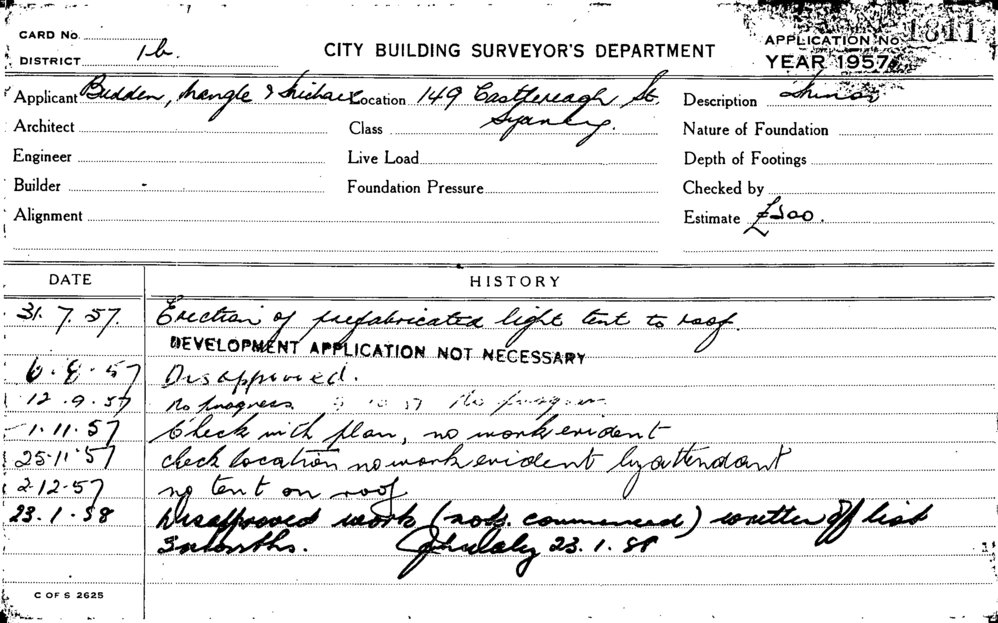 CARD No.
DISTRICT 1b.
CITY BUILDING SURVEYOR'S DEPARTMENT
APPLICATION No. 1811
YEAR 1957
Applicant Budden, Nangle & Michael
Location 149 Castlereagh St.
Description Minor
Architect
Class Sydney.
Nature of Foundation
Engineer
Live Load
Depth of Footings
Builder
Foundation Pressure
Checked by
Alignment
Estimate £500.
DATE HISTORY
31.7.57. Erection of prefabricated light tent to roof.
DEVELOPMENT APPLICATION NOT NECESSARY
6.8.57 Disapproved.
12.9.57 No progress. 9 10 57 No progress
1.11.57 Check with plan, no work evident
25.11.57 check location no work evident by attendant
2.12.57 no tent on roof
23.1.58 Disapproved work (not commenced) written off list
3 months. 23.1.58
C OF S 2625